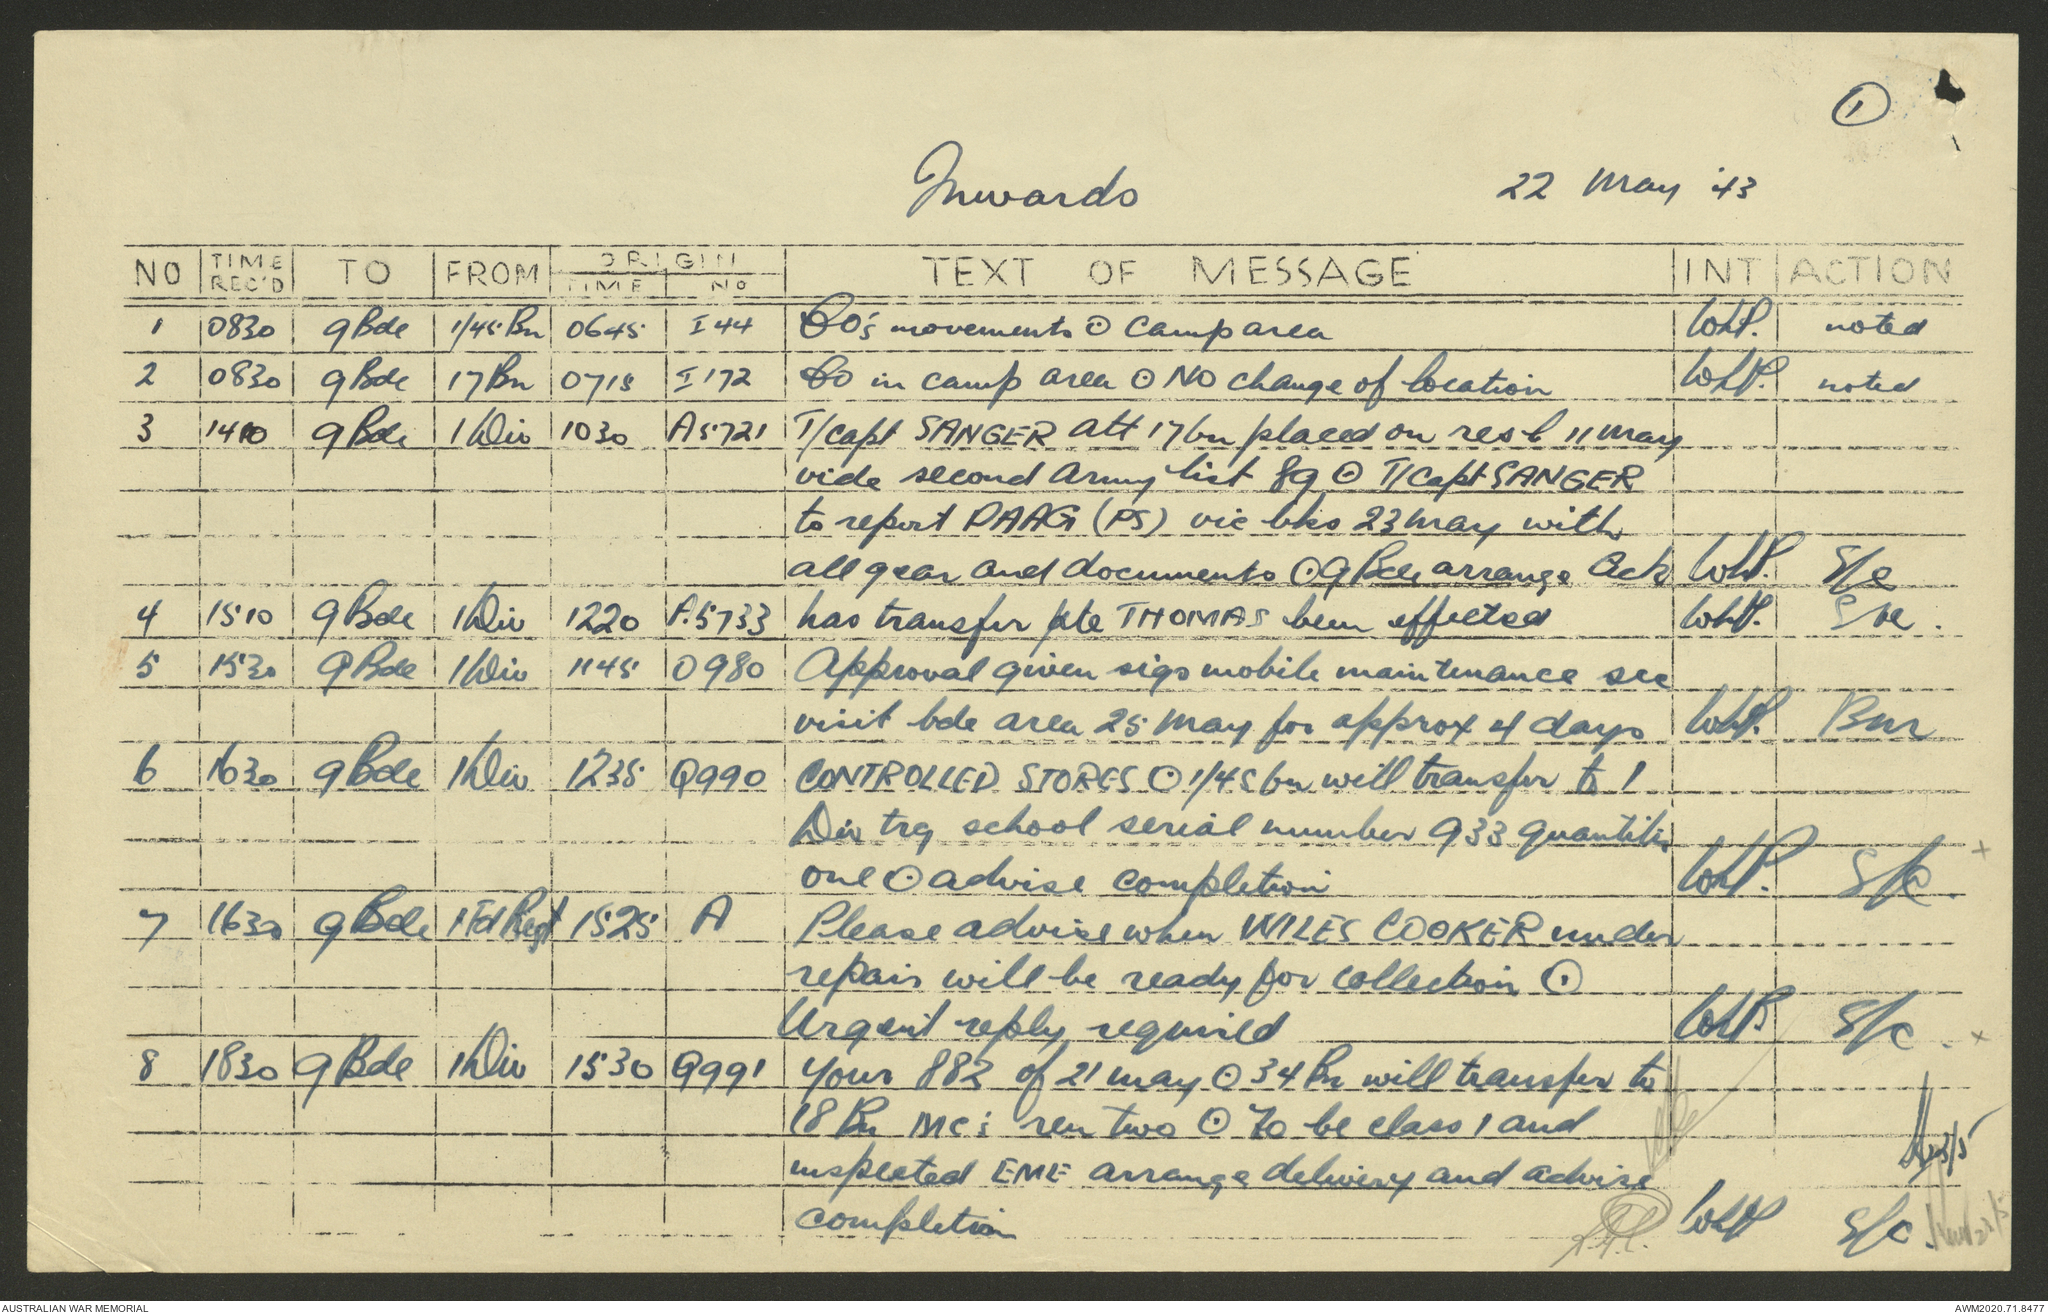 1
Inwards
22 May '43
NO TIME REC'D TO FROM ORIGIN TIME NO TEXT OF MESSAGE INT ACTION
1 0830 9 Bde 1/45 Bn 0645 I 44 CO's movements ⊙ Camp area WHP. noted
2 0830 9 Bde 17 Bn 0715 I 172 CO in camp area ⊙ NO change of location WHP. noted
3 1410 9 Bde 1 Div 1030 A5721 T/Capt SANGER att 17 bn placed on res l 11 May
vide second Army list 89 ⊙ T/Capt SANGER
to report DAAG (PS) vic bks 23 May with
all gear and documents ⊙ 9 Bde arrange Ack WHP. S/c
4 1510 9 Bde 1 Div 1220 A.5733 has transfer pte THOMAS been effected WHP.
5 1530 9 Bde 1 Div 1145 O980 Approval given sigs mobile maintenance sec
visit bde area 25 May for approx 4 days WHP. BMR
6 1630 9 Bde 1 Div 1235 Q990 CONTROLLED STORES ⊙ 1/45 bn will transfer to 1
Div trg school serial number 933 quantity
one ⊙ advise completion WHP. S/c. +
7 1630 9 Bde 1 Fd Regt 1525 A Please advise when WILES COOKER under
repair will be ready for collection ⊙
Urgent reply required WHP S/c. x
8 1830 9 Bde 1 Div 1530 Q991 Your 882 of 21 May ⊙ 34 Bn will transfer to
18 Bn MC's ren two ⊙ To be class 1 and
inspected EME arrange delivery and advise
completion WHP S/c.
AUSTRALIAN WAR MEMORIAL
AWM2020.71.8477